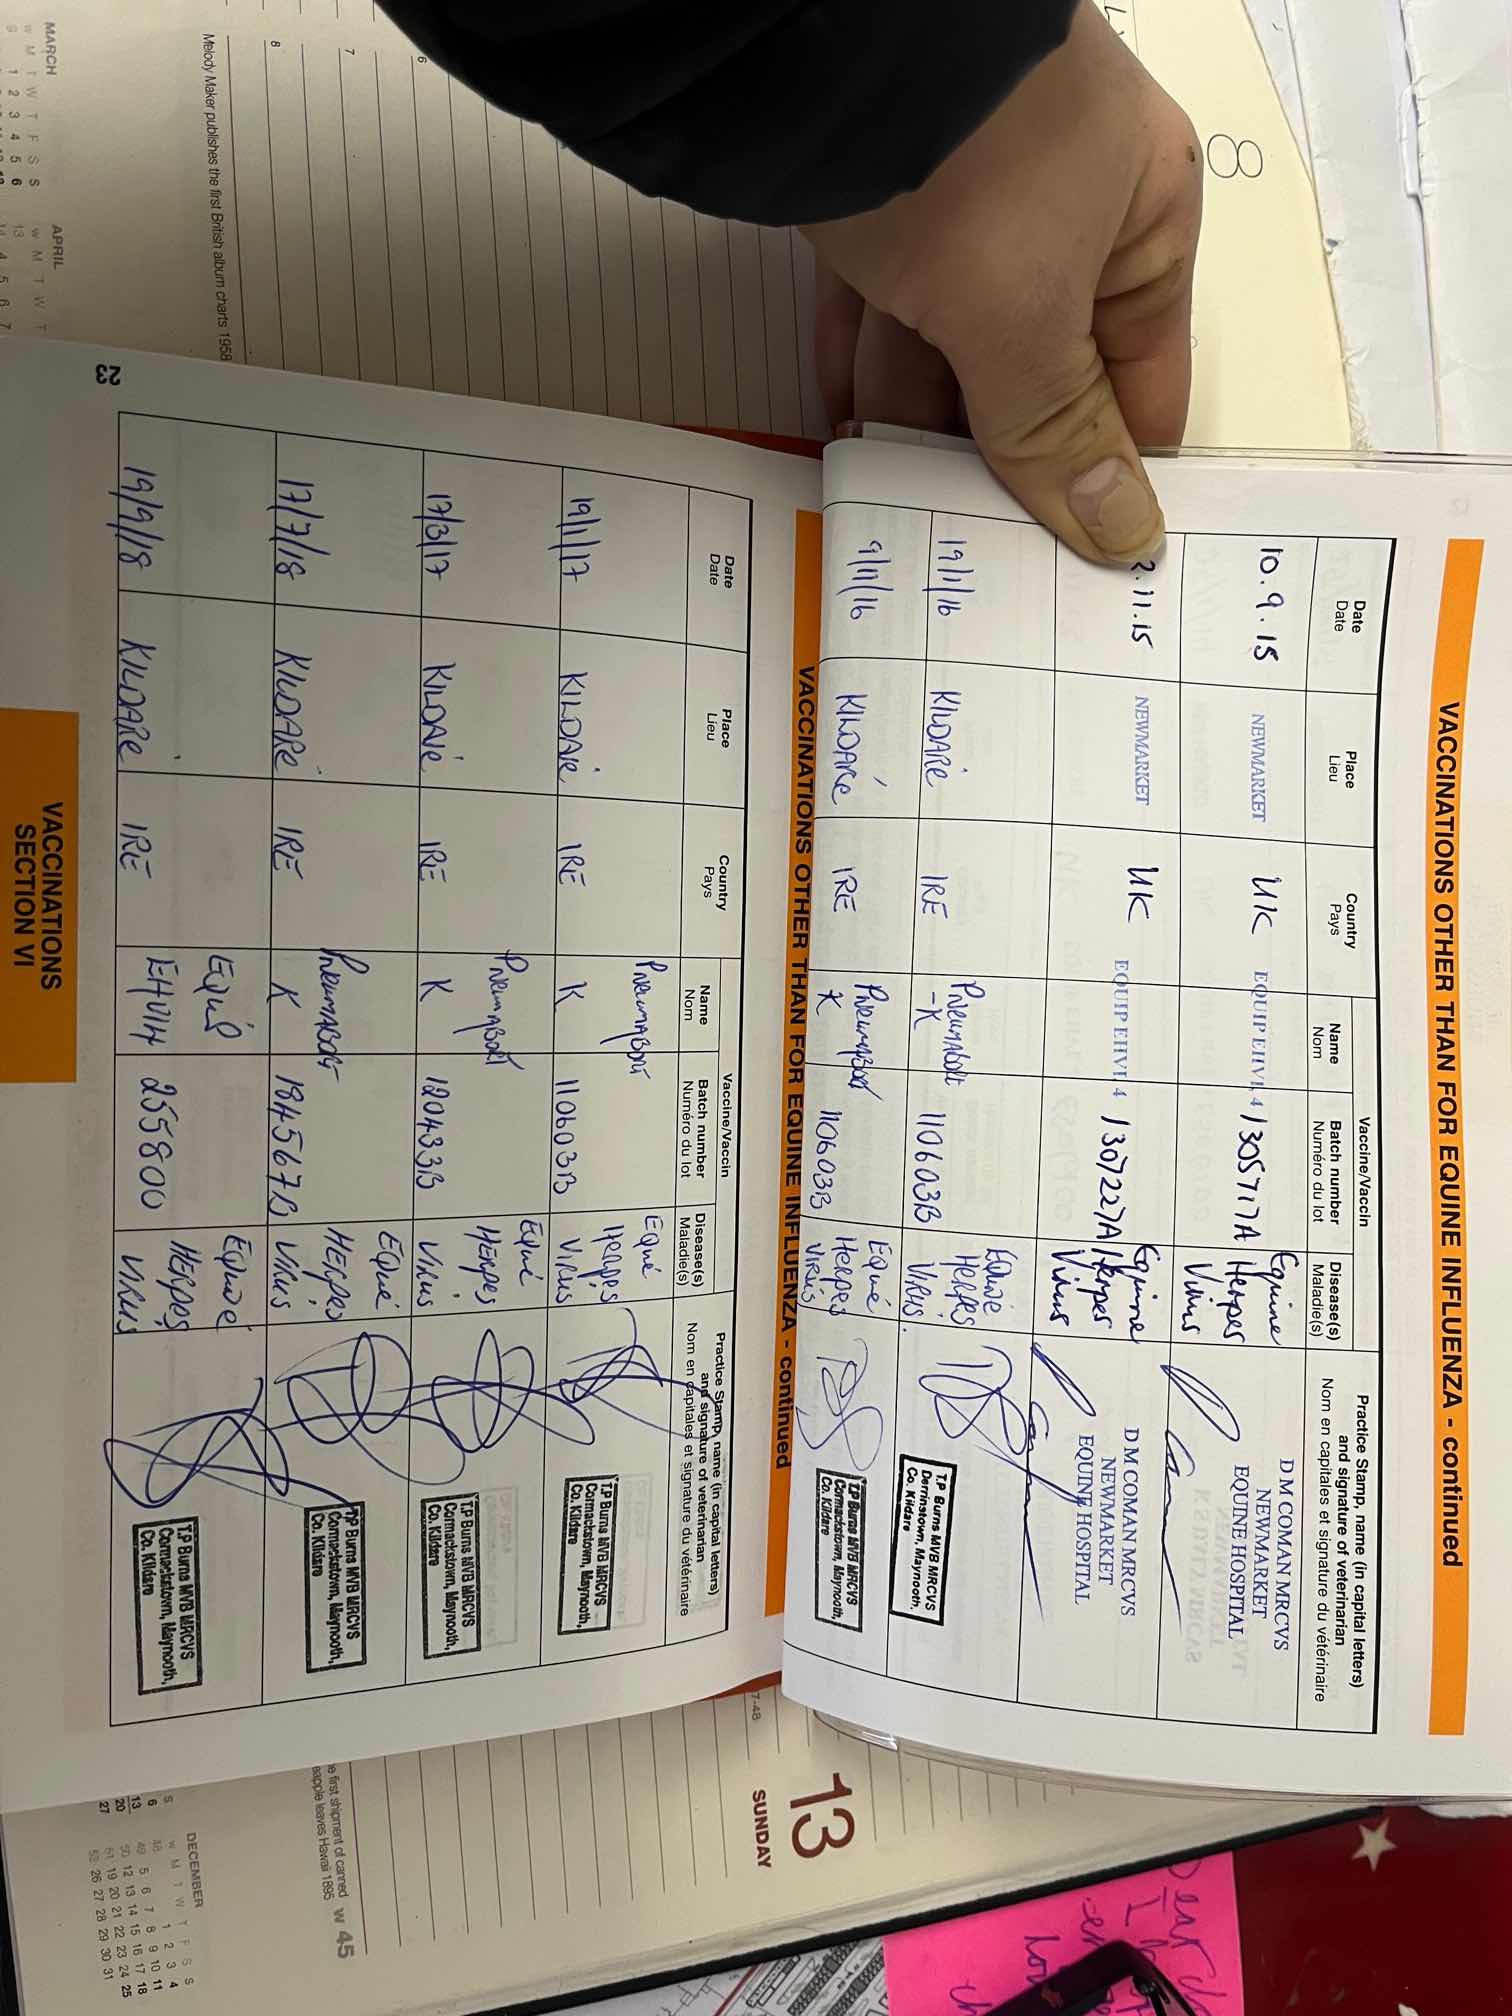 VACCINATIONS OTHER THAN FOR EQUINE INFLUENZA - continued
Date
Date
Place
Lieu
Country
Pays
Vaccine/Vaccin
Name
Nom
Batch number
Numéro du lot
Disease(s)
Maladie(s)
Practice Stamp, name (in capital letters)
and signature of veterinarian
Nom en capitales et signature du vétérinaire
10.9.15 NEWMARKET UK EQUIP EHV1,4 1305717A Equine Herpes Virus
D M COMAN MRCVS
NEWMARKET
EQUINE HOSPITAL
2.11.15 NEWMARKET UK EQUIP EHV1,4 1307227A Equine Herpes Virus
D M COMAN MRCVS
NEWMARKET
EQUINE HOSPITAL
19/1/16 KILDARE IRE PNEUMABORT -K 110603B EQUINE HERPES VIRUS.
T.P Burns MVB MRCVS
Derrinstown, Maynooth,
Co. Kildare
9/11/16 KILDARE IRE PNEUMABORT K 110603B EQUINE HERPES VIRUS
T.P Burns MVB MRCVS
Cormackstown, Maynooth,
Co. Kildare
VACCINATIONS OTHER THAN FOR EQUINE INFLUENZA - continued
Date
Date
Place
Lieu
Country
Pays
Vaccine/Vaccin
Name
Nom
Batch number
Numéro du lot
Disease(s)
Maladie(s)
Practice Stamp, name (in capital letters)
and signature of veterinarian
Nom en capitales et signature du vétérinaire
19/1/17 KILDARE IRE PNEUMABORT K 110603B EQUINE HERPES VIRUS
T.P Burns MVB MRCVS
Cormackstown, Maynooth,
Co. Kildare
17/3/17 KILDARE IRE PNEUMABORT K 120433B EQUINE HERPES VIRUS
T.P Burns MVB MRCVS
Cormackstown, Maynooth,
Co. Kildare
17/7/18 KILDARE IRE PNEUMABORT K 184567B EQUINE HERPES VIRUS
T.P Burns MVB MRCVS
Cormackstown, Maynooth,
Co. Kildare
19/9/18 KILDARE IRE EQUIP EHV14 255800 EQUINE HERPES VIRUS
T.P Burns MVB MRCVS
Cormackstown, Maynooth,
Co. Kildare
23
VACCINATIONS
SECTION VI
8
6
7
8
Melody Maker publishes the first British album charts 1958
MARCH
APRIL
13
SUNDAY
first shipment of canned
leaves Hawaii 1895
W 45
DECEMBER